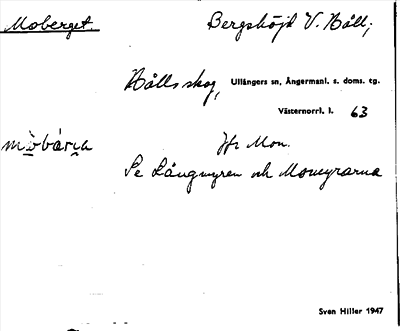 Moberget. Bergshöjd V. Håll;
Hålls skog, Ullångers sn, Ångermanl. s. doms. tg.
Västernorrl. l. 63
mòbárja Jfr Mon.
Se Långmyren och Momyrarna
Sven Hiller 1947